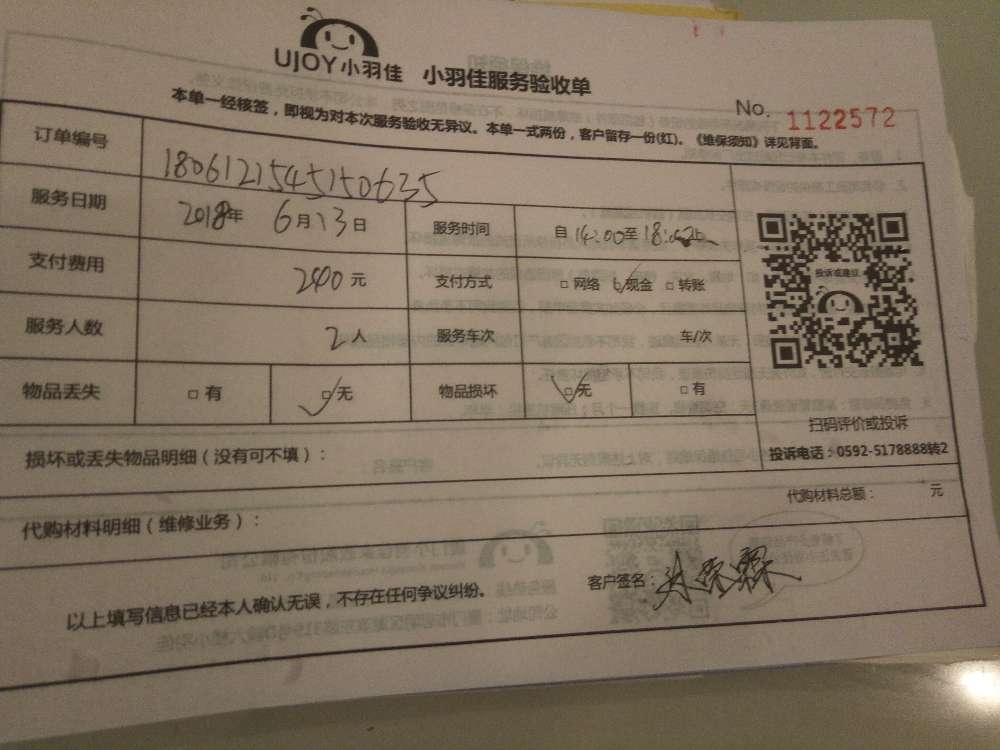 UJOY小羽佳 小羽佳服务验收单
本单一经核签，即视为对本次服务验收无异议。本单一式两份，客户留存一份(红)。《维保须知》详见背面。
No. 1122572
订单编号 1806121545150635
服务日期 2018年 6月13日 服务时间 自14:00至18:00
支付费用 240元 支付方式 □网络 □现金 □转账
服务人数 2人 服务车次 车/次
物品丢失 □有 □无 物品损坏 □无 □有
投诉或建议
扫码评价或投诉
投诉电话：0592-5178888转2
损坏或丢失物品明细（没有可不填）：
代购材料总额： 元
代购材料明细（维修业务）：
以上填写信息已经本人确认无误，不存在任何争议纠纷。
客户签名：